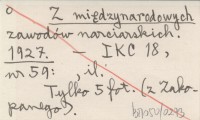 Z międzynarodowych
zawodów narciarskich.
1927. — IKC 18,
nr 59: il.
Tylko 5 fot. (z Zako-
panego).